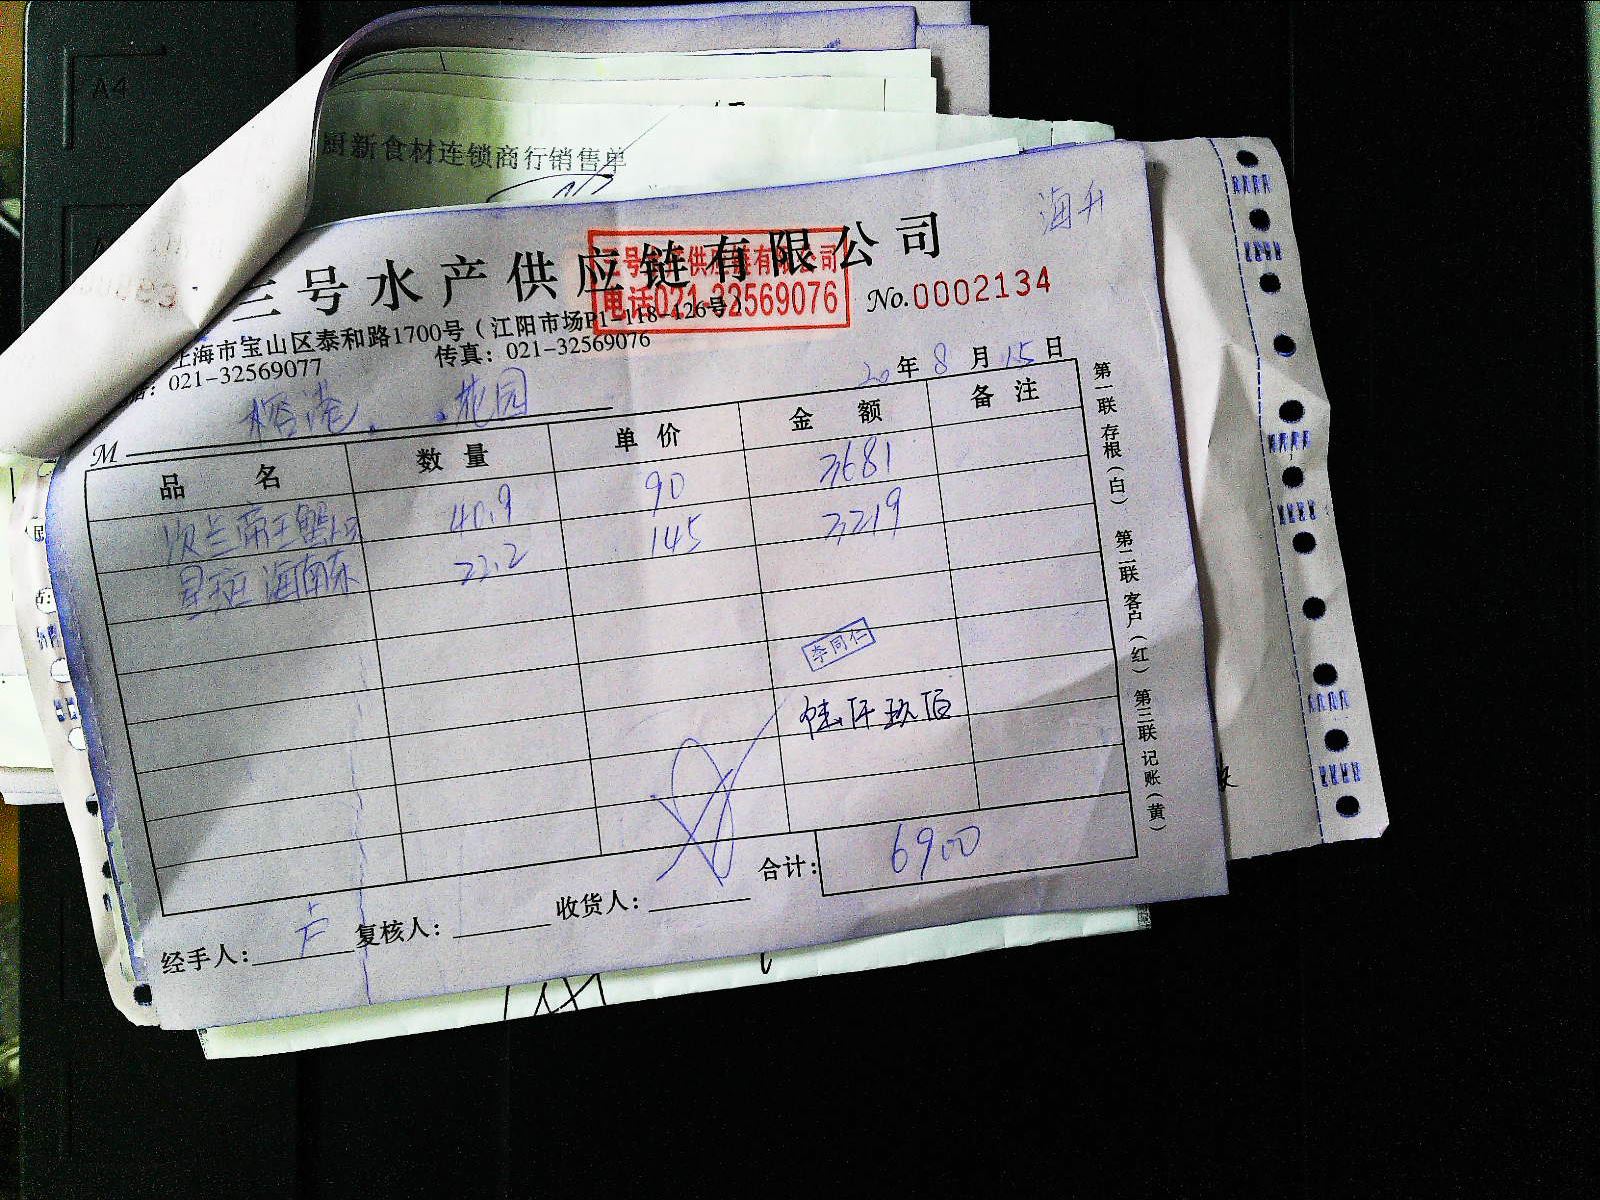 A4
厨新食材连锁商行销售单
海升
三号水产供应链有限公司
三号水产供应链有限公司
电话021-32569076
No.0002134
上海市宝山区泰和路1700号（江阳市场P1-118-126号）
话：021-32569077 传真：021-32569076
20年8月15日
M 榕港. .花园
品名 数量 单价 金额 备注
次兰帝王蟹 40.9 90 3681
星斑 海南东 22.2 145 3219
李同仁
陆仟玖佰
合计： 6900
经手人： 卢 复核人： 收货人：
第一联 存根（白） 第二联 客户（红） 第三联 记账（黄）